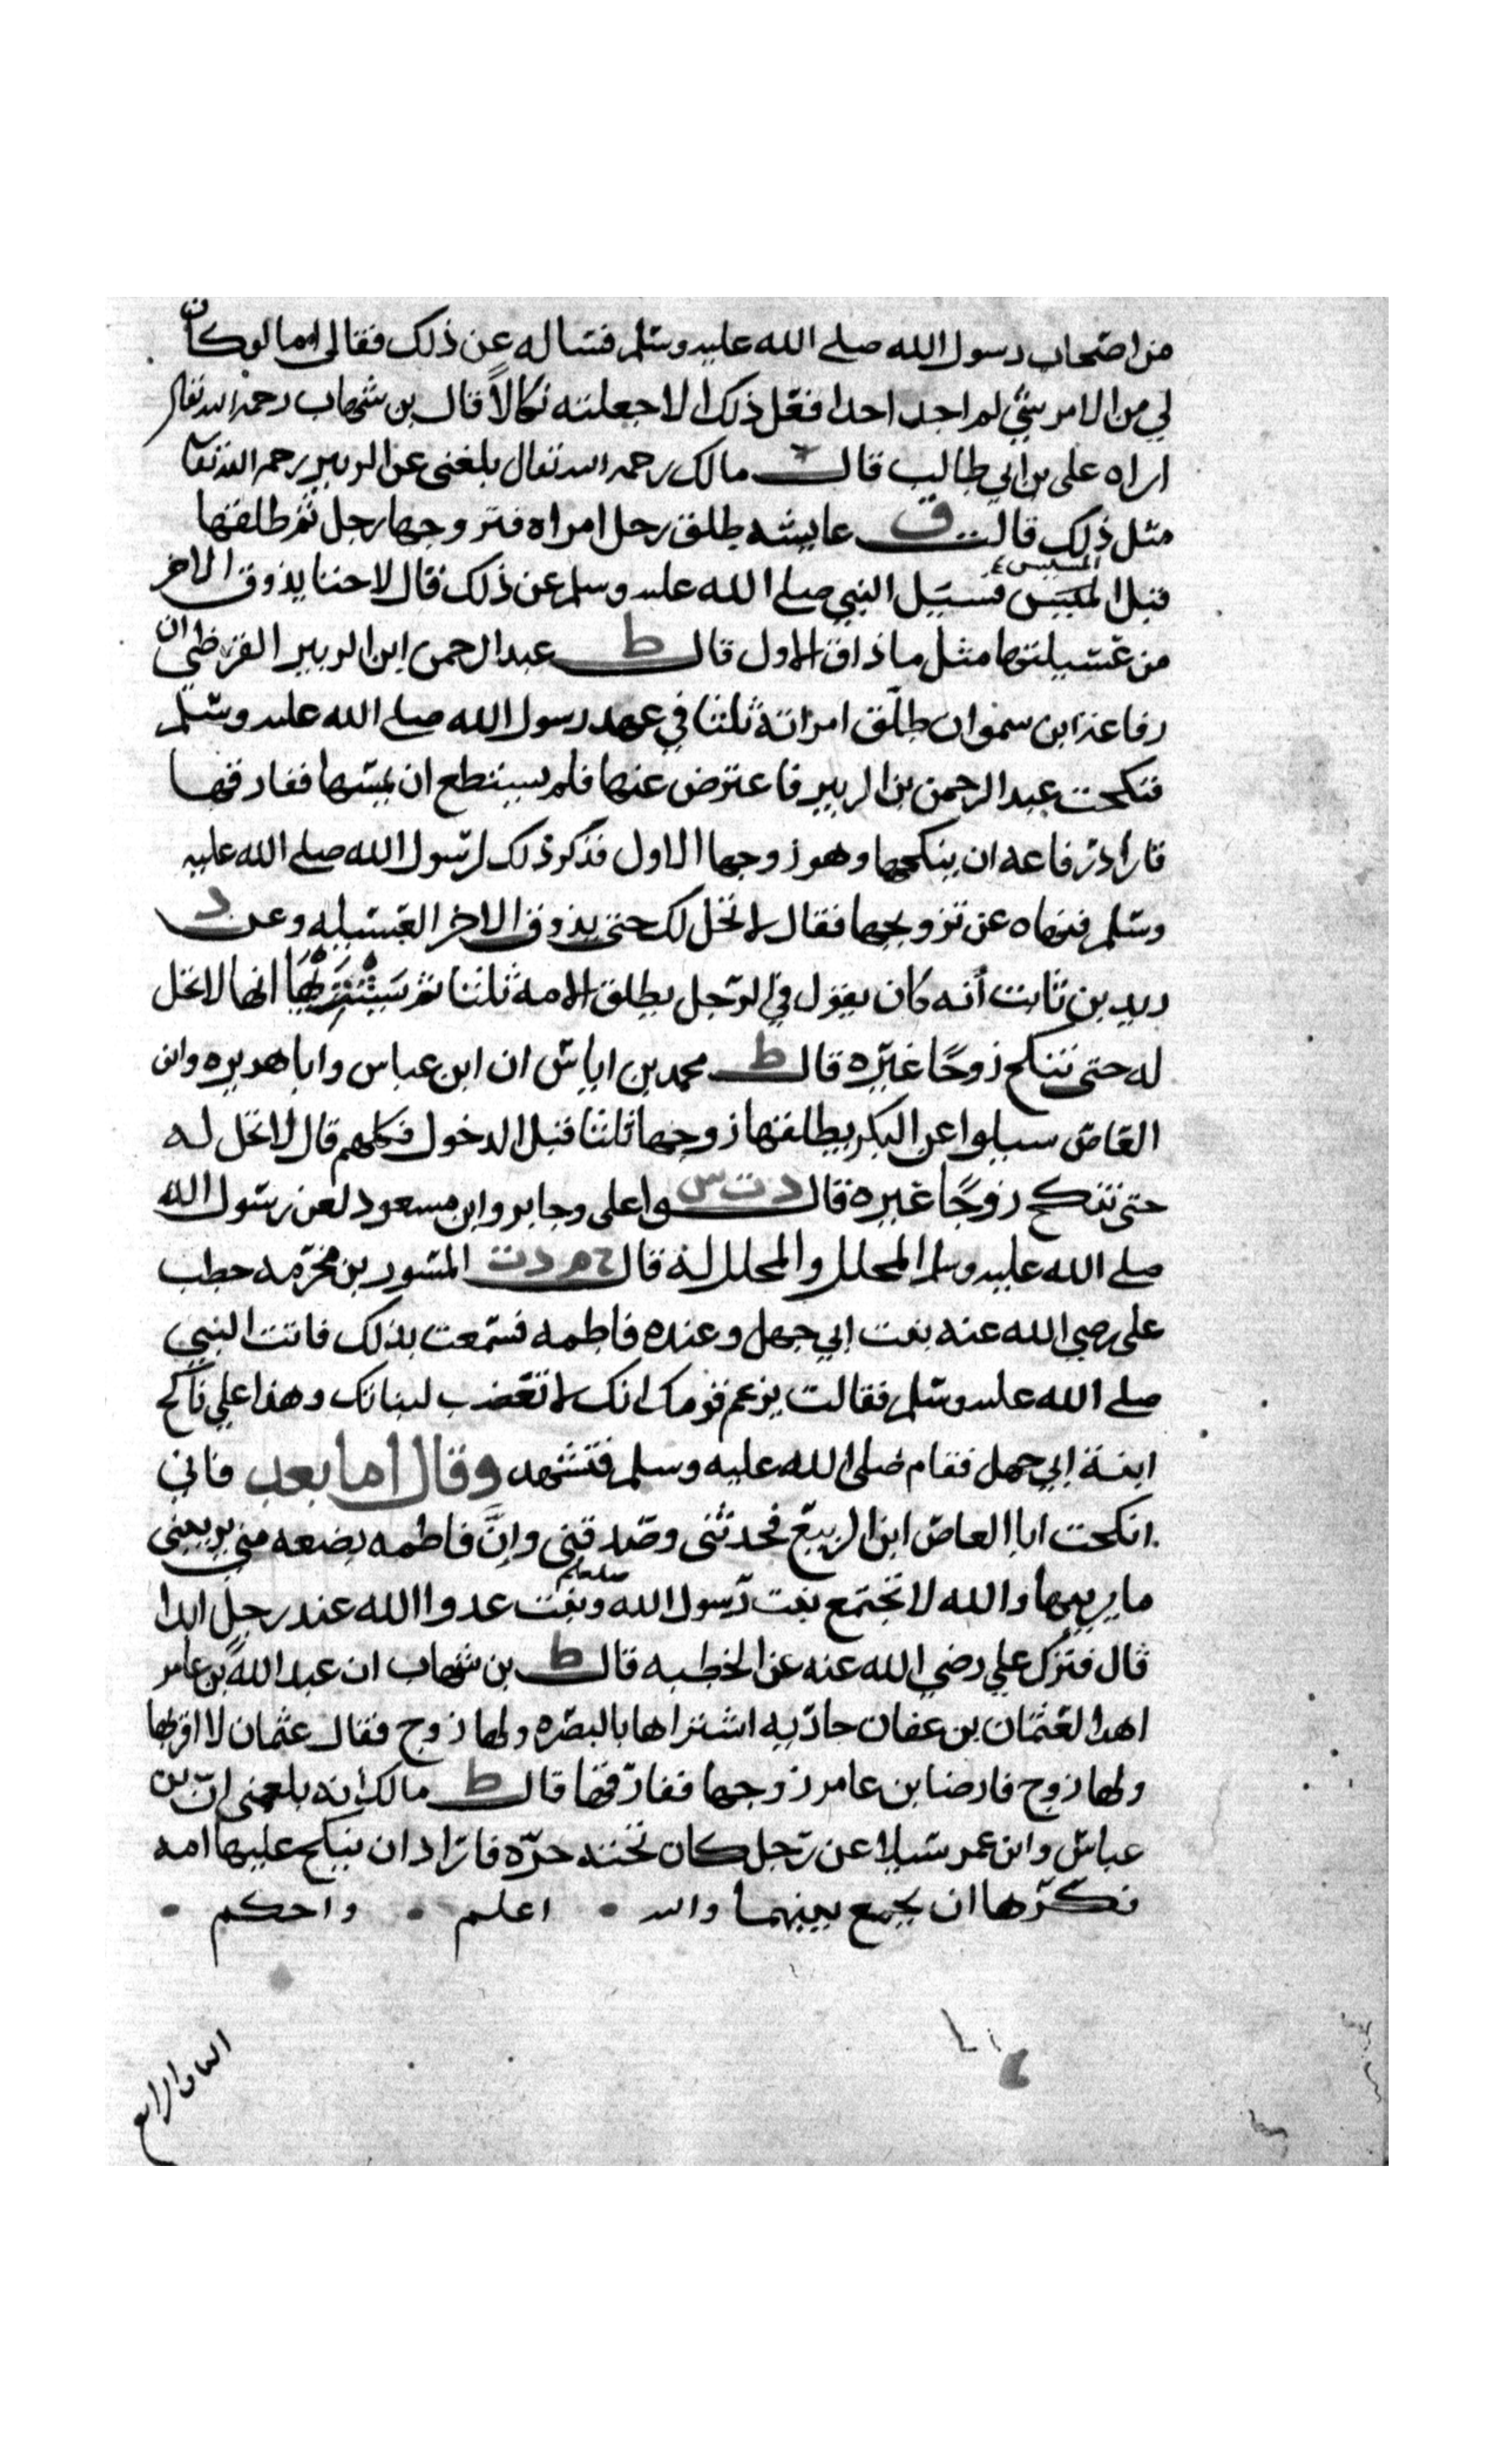 من اصحاب رسول الله صلى الله عليه وسلم فساله عن ذلك فقال اما لو كان
لي من الامر شي لم اجد احدا فعل ذلك الا جعلته نكالاً قال بن شهاب رحمه الله تعالى
اراه على بن ابي طالب قال مالك رحمه الله تعال بلغنى عن الزبير رحمه الله تعالى
مثل ذلك قالت ق عايشه طلق رجل امراه فتزوجها رجل ثم طلقها
قبل المسيس فسيل النبي صلى الله عليه وسلم عن ذلك فقال لا حتا يذوق الاخر
من عسيلتها مثل ما ذاق الاول قال ط عبد الرحمن ابن الزبير القرظي ان
رفاعة ابن سموان طلّق امراته ثلثا في عهد رسول الله صلى الله عليه وسلم
فنكحت عبد الرحمن بن الزبير فاعترض عنها فلم يستطع ان يمسها ففارقها
فاراد رفاعه ان ينكحها وهو زوجها الاول فذكر ذلك لرسول الله صلى الله عليه
وسلم فنهاه عن تزويجها فقال لا تحل لك حتى يذوق الاخر العسيله وعن د
زيد بن ثابت أنه كان يقول في الرجل يطلق الامه ثلثا ثم يشتريها انها لا تحل
له حتى تنكح زوجًا غيره قال ط محمد بن اياس ان ابن عباس وابا هريره وابن
العاص سيلوا عن البكر يطلقها زوجها ثلثا قبل الدخول فكلهم قال لا تحل له
حتى تنكح زوجًا غيره قال د ت س وا على وجابر وابن مسعود لعن رسول الله
صلى الله عليه وسلم المحلل والمحلل له قال خ م د ت المسور بن مخرمه خطب
على رضي الله عنه بنت ابي جهل وعنده فاطمه فسمعت بذلك فاتت النبي
صلى الله عليه وسلم فقالت يزعم قومك انك لا تغضب لبناتك وهذا علي ناكح
ابنة ابي جهل فقام صلى الله عليه وسلم فتشهد وقال اما بعد فاني
انكحت ابا العاص ابن الربيع فحدثنى وصدقنى وانَّ فاطمه بضعه مني يريبني
ما يريبها والله لا تجتمع بنت رسول الله صلعم وبنت عدو الله عند رجل ابدا
قال فترك علي رضي الله عنه عن الخطبه قال ط بن شهاب ان عبد الله بن عامر
اهدا لعثمان بن عفان جاريه اشتراها بالبصره ولها زوج فقال عثمان لا اقربها
ولها زوج فارضا بن عامر زوجها ففارقها قال ط مالك انه بلغنى ان بن
عباس وابن عمر سيلا عن رجل كان تحته حرّه فاراد ان ينكح عليها امه
فكرها ان يجمع بينهما والله اعلم واحكم
الباب الرابع